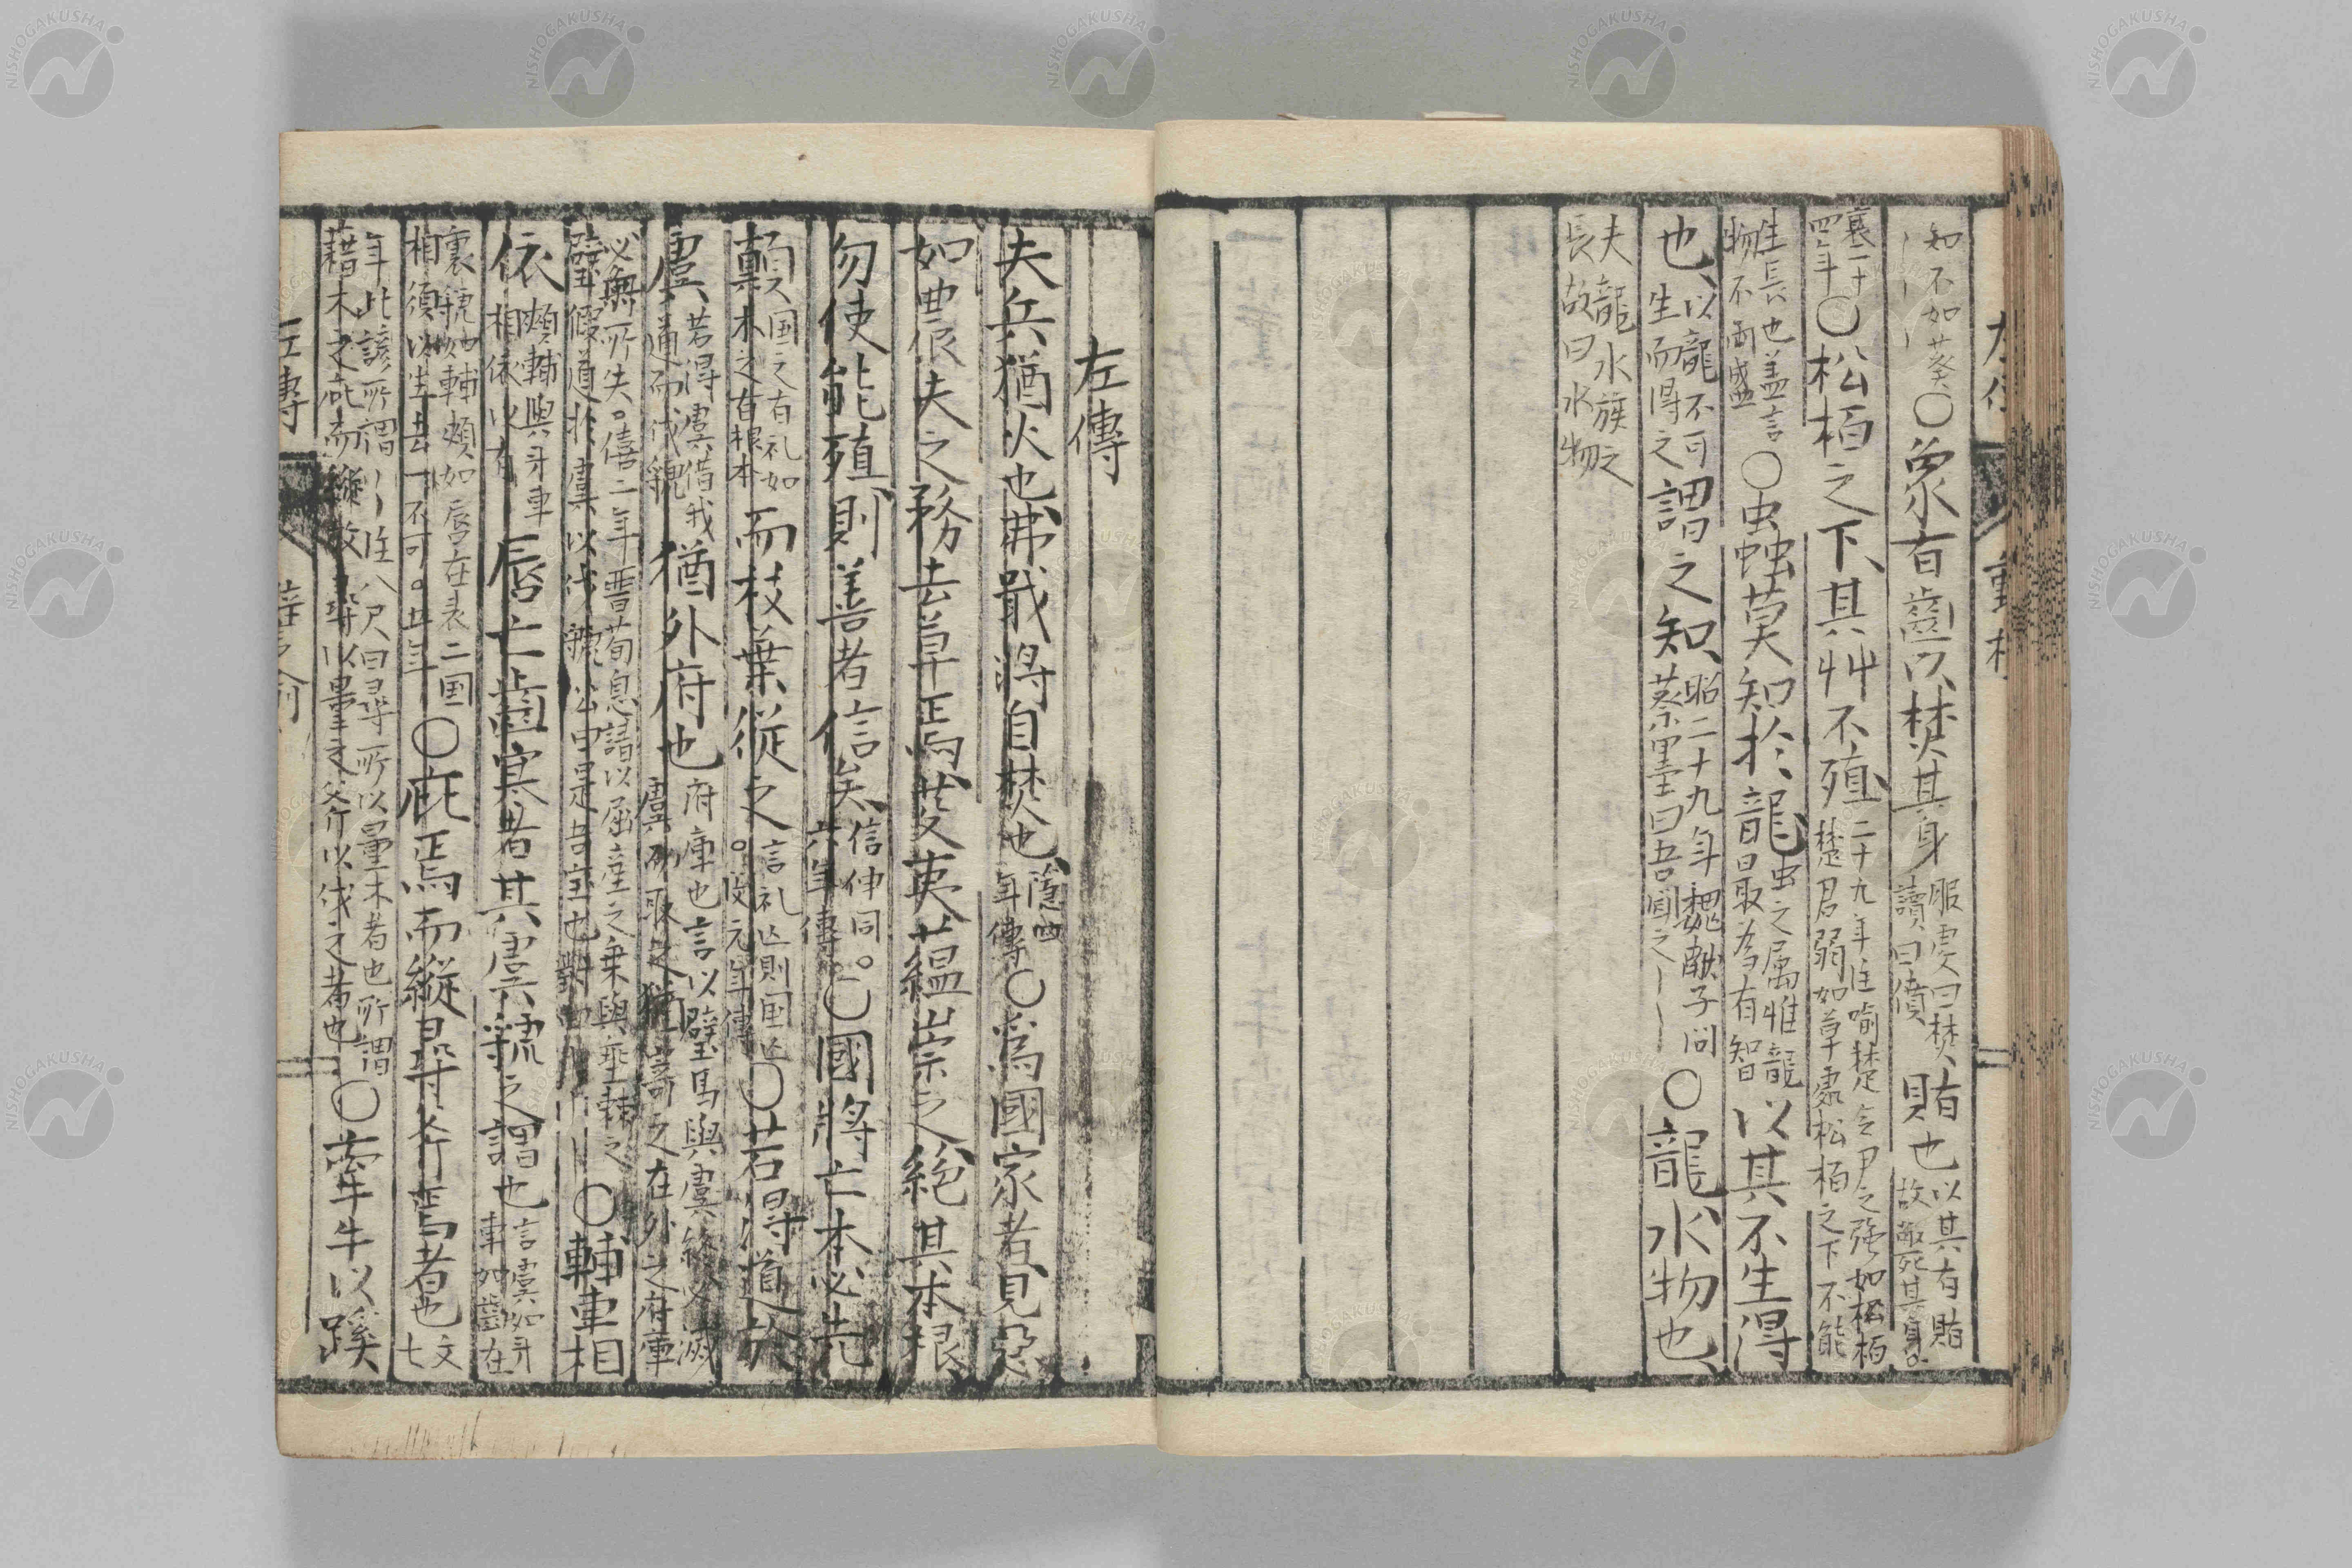 知不如葵〇象有齒以焚其身服虔曰焚讀曰僨賄也以其有賄故敝死其身。
襄二十四年〇松栢之下、其艸不殖、二十九年注喻楚令尹之强如松栢楚君弱如草處松栢之下不能
生長也盖言物不兩盛〇虫蟲莫知於龍、虫之属惟龍最為有智以其不生得
也、以龍不可生而得之謂之知、昭二十九年魏献子問蔡墨曰吾聞之〇龍、水物也、
夫龍水族之長故曰水物
左傳
夫兵猶火也弗戢將自焚也、隠四年傳〇為國家者、見惡
如農夫之務去草焉芟夷蕰崇之、絶其本根
勿使能殖、則善者信矣、信伸同。六年傳。〇國將亡本必先
顛国之有礼如木之有根本而枝葉從之。言礼亡則国亡。閔元年傳〇若得道於
虞若得虞借我道而伐虢猶外府也府庫也言以璧馬與虞終必滅虞而取之猶寄之在外之府庫
必無所失。僖二年晋荀息請以屈産之乗與垂棘之璧假道於虞以伐虢公曰是吾宝也對曰〇輔車相
依頰輔與牙車相依以有唇亡齒寒者其虞虢之謂也言虞如牙車如齒在
裏虢如輔頰如唇在表二国相須以生去一不可。五年〇庇焉而縱尋斧焉者也文七
年此諺所謂注八尺曰尋所以量木者也所謂藉木之庇而縱放尋以量之斧以伐之者也〇牽牛以蹊
左傳